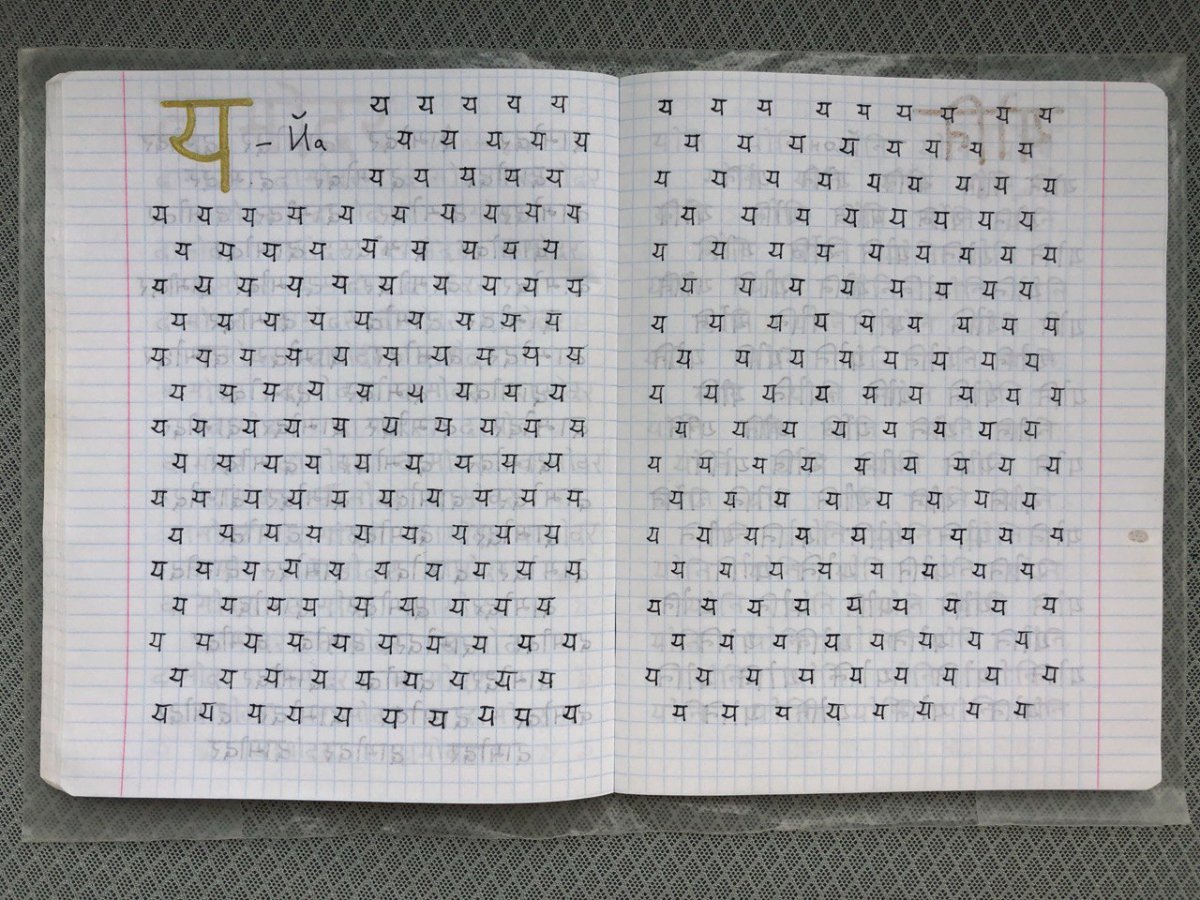 य – Йа य य य य य
य य य य य
य य य य य
य य य य य य य य य य
य य य य य य य य य
य य य य य य य य य य
य य य य य य य य य
य य य य य य य य य य
य य य य य य य य य
य य य य य य य य य य
य य य य य य य य य
य य य य य य य य य य
य य य य य य य य य
य य य य य य य य य य
य य य य य य य य य
य य य य य य य य य य
य य य य य य य य य
य य य य य य य य य य
य य य य य य य य य
य य य य य य य य
य य य य य य य य य
य य य य य य य य
य य य य य य य य य
य य य य य य य य
य य य य य य य य य
य य य य य य य य
य य य य य य य य य
य य य य य य य य
य य य य य य य य य
य य य य य य य य
य य य य य य य य य
य य य य य य य य
य य य य य य य य य
य य य य य य य य
य य य य य य य य य
य य य य य य य य